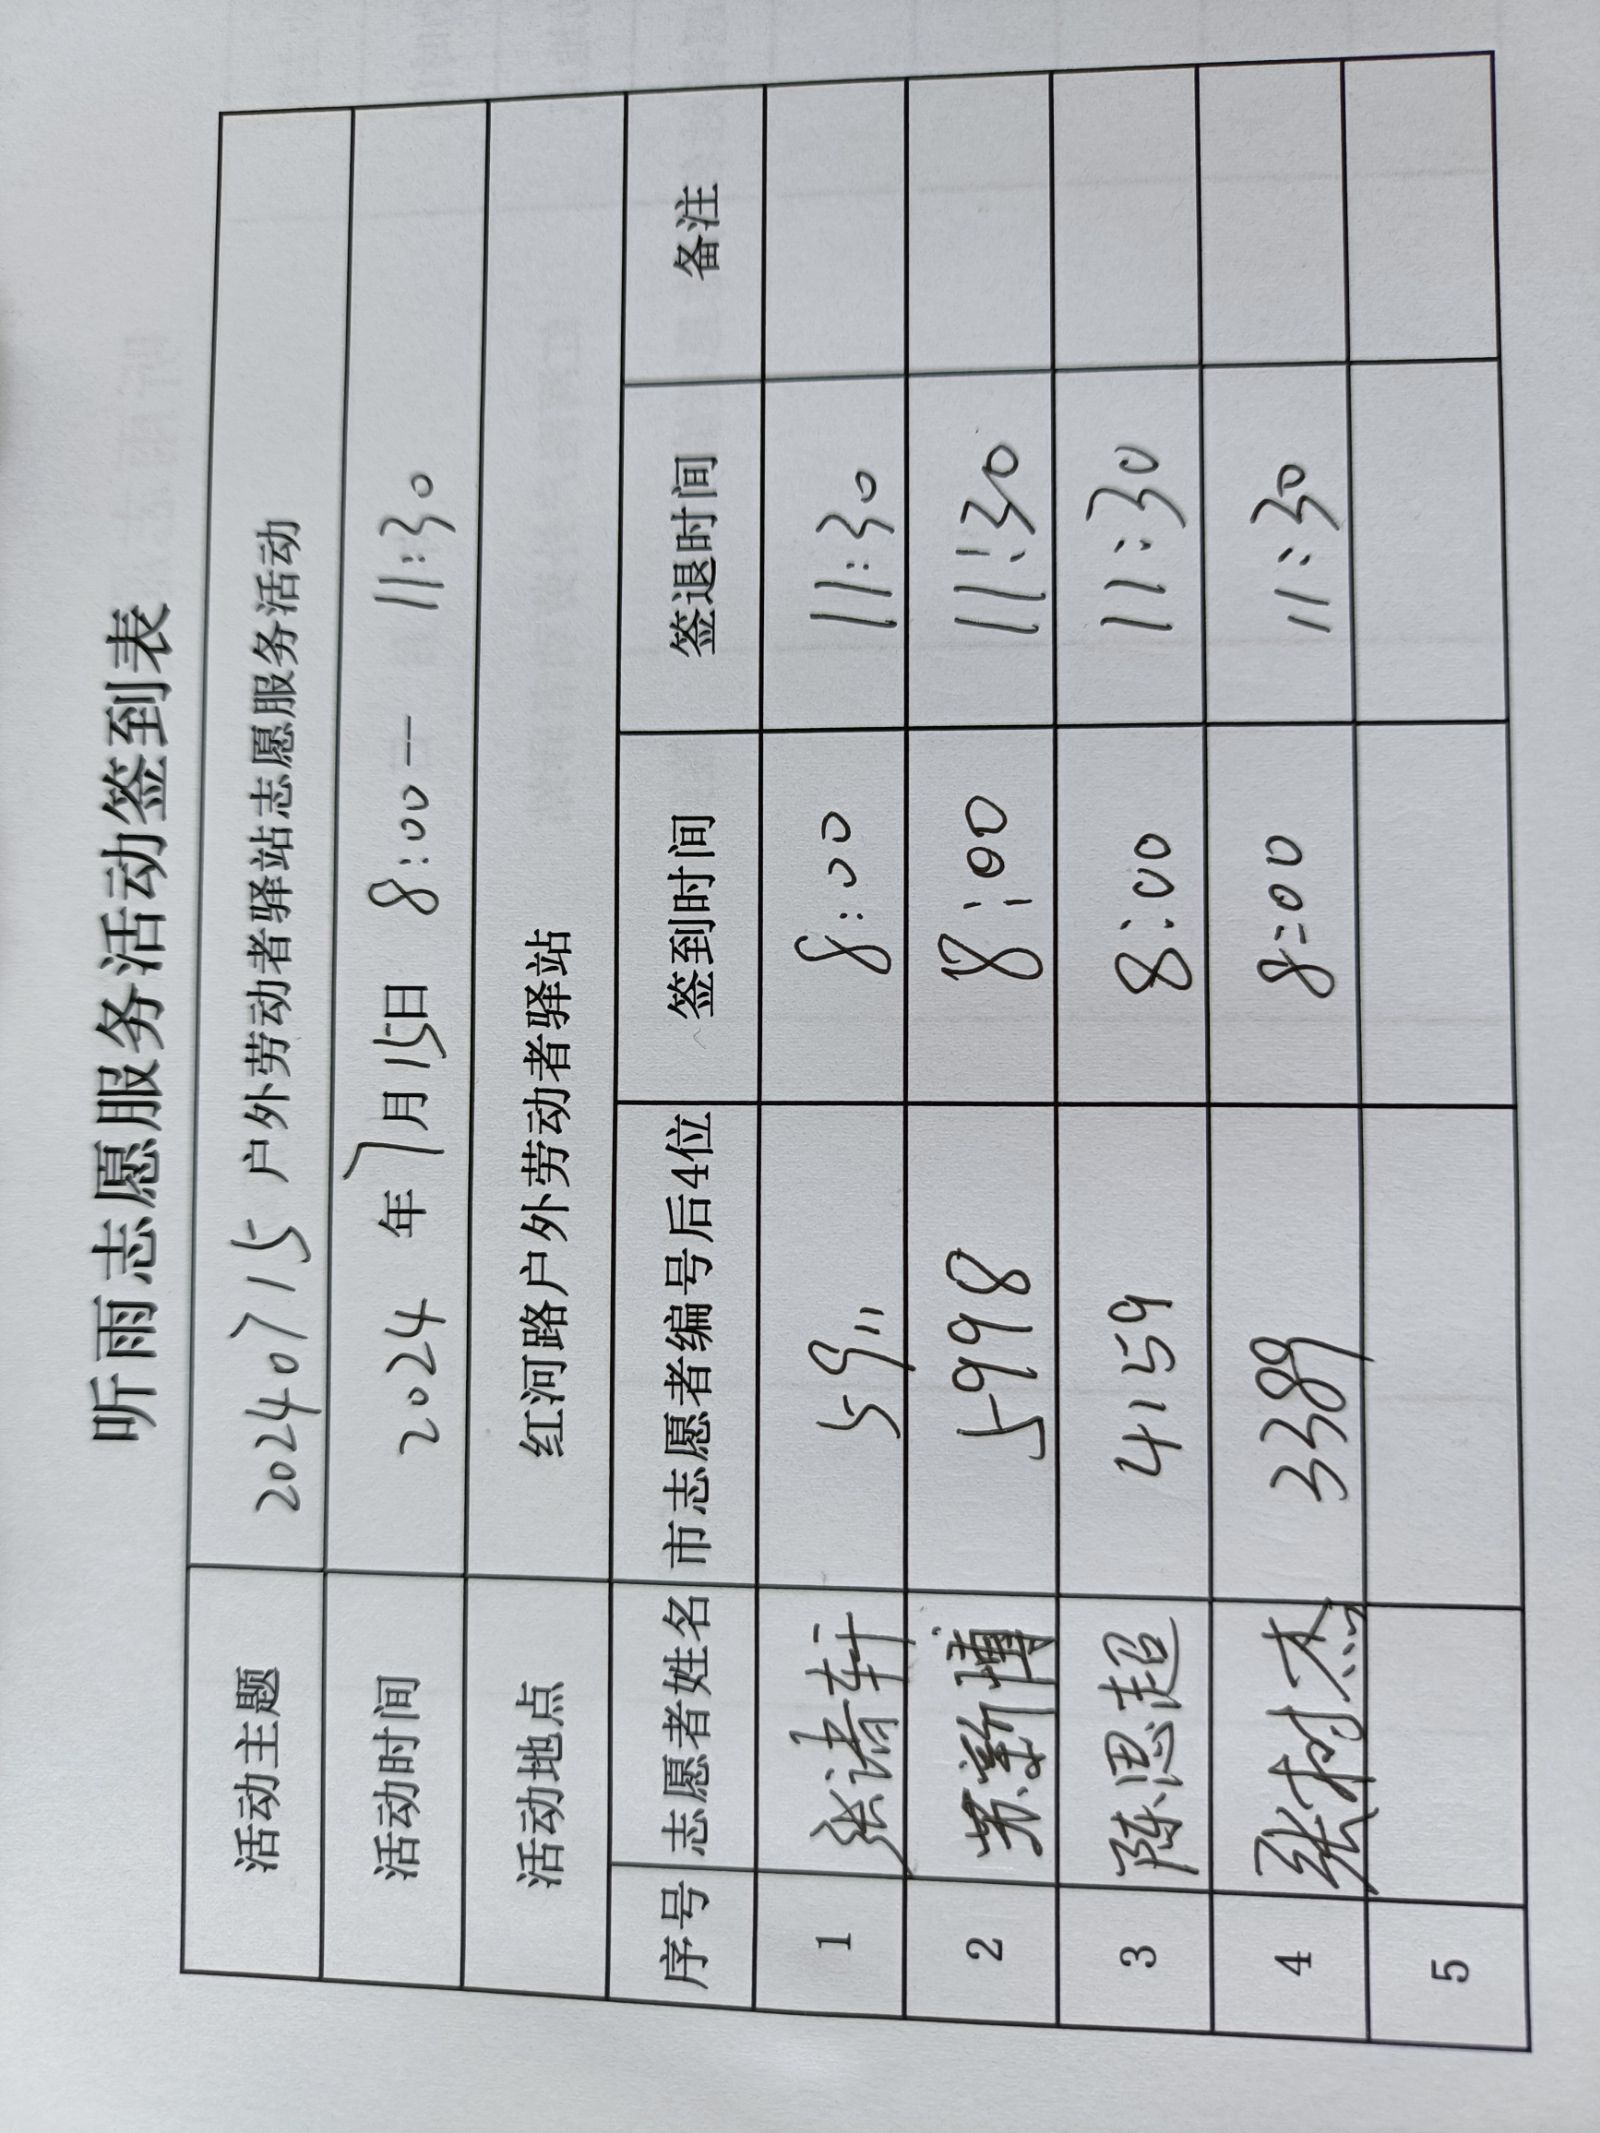 听雨志愿服务活动签到表
活动主题 20240715 户外劳动者驿站志愿服务活动
活动时间 2024 年 7月15日 8:00— 11:30
活动地点 红河路户外劳动者驿站
序号 志愿者姓名 市志愿者编号后4位 签到时间 签退时间 备注
1 张诸轩 5911 8:00 11:30
2 苏新博 5998 8:00 11:30
3 陈思超 4159 8:00 11:30
4 张树杰 3389 8:00 11:30
5